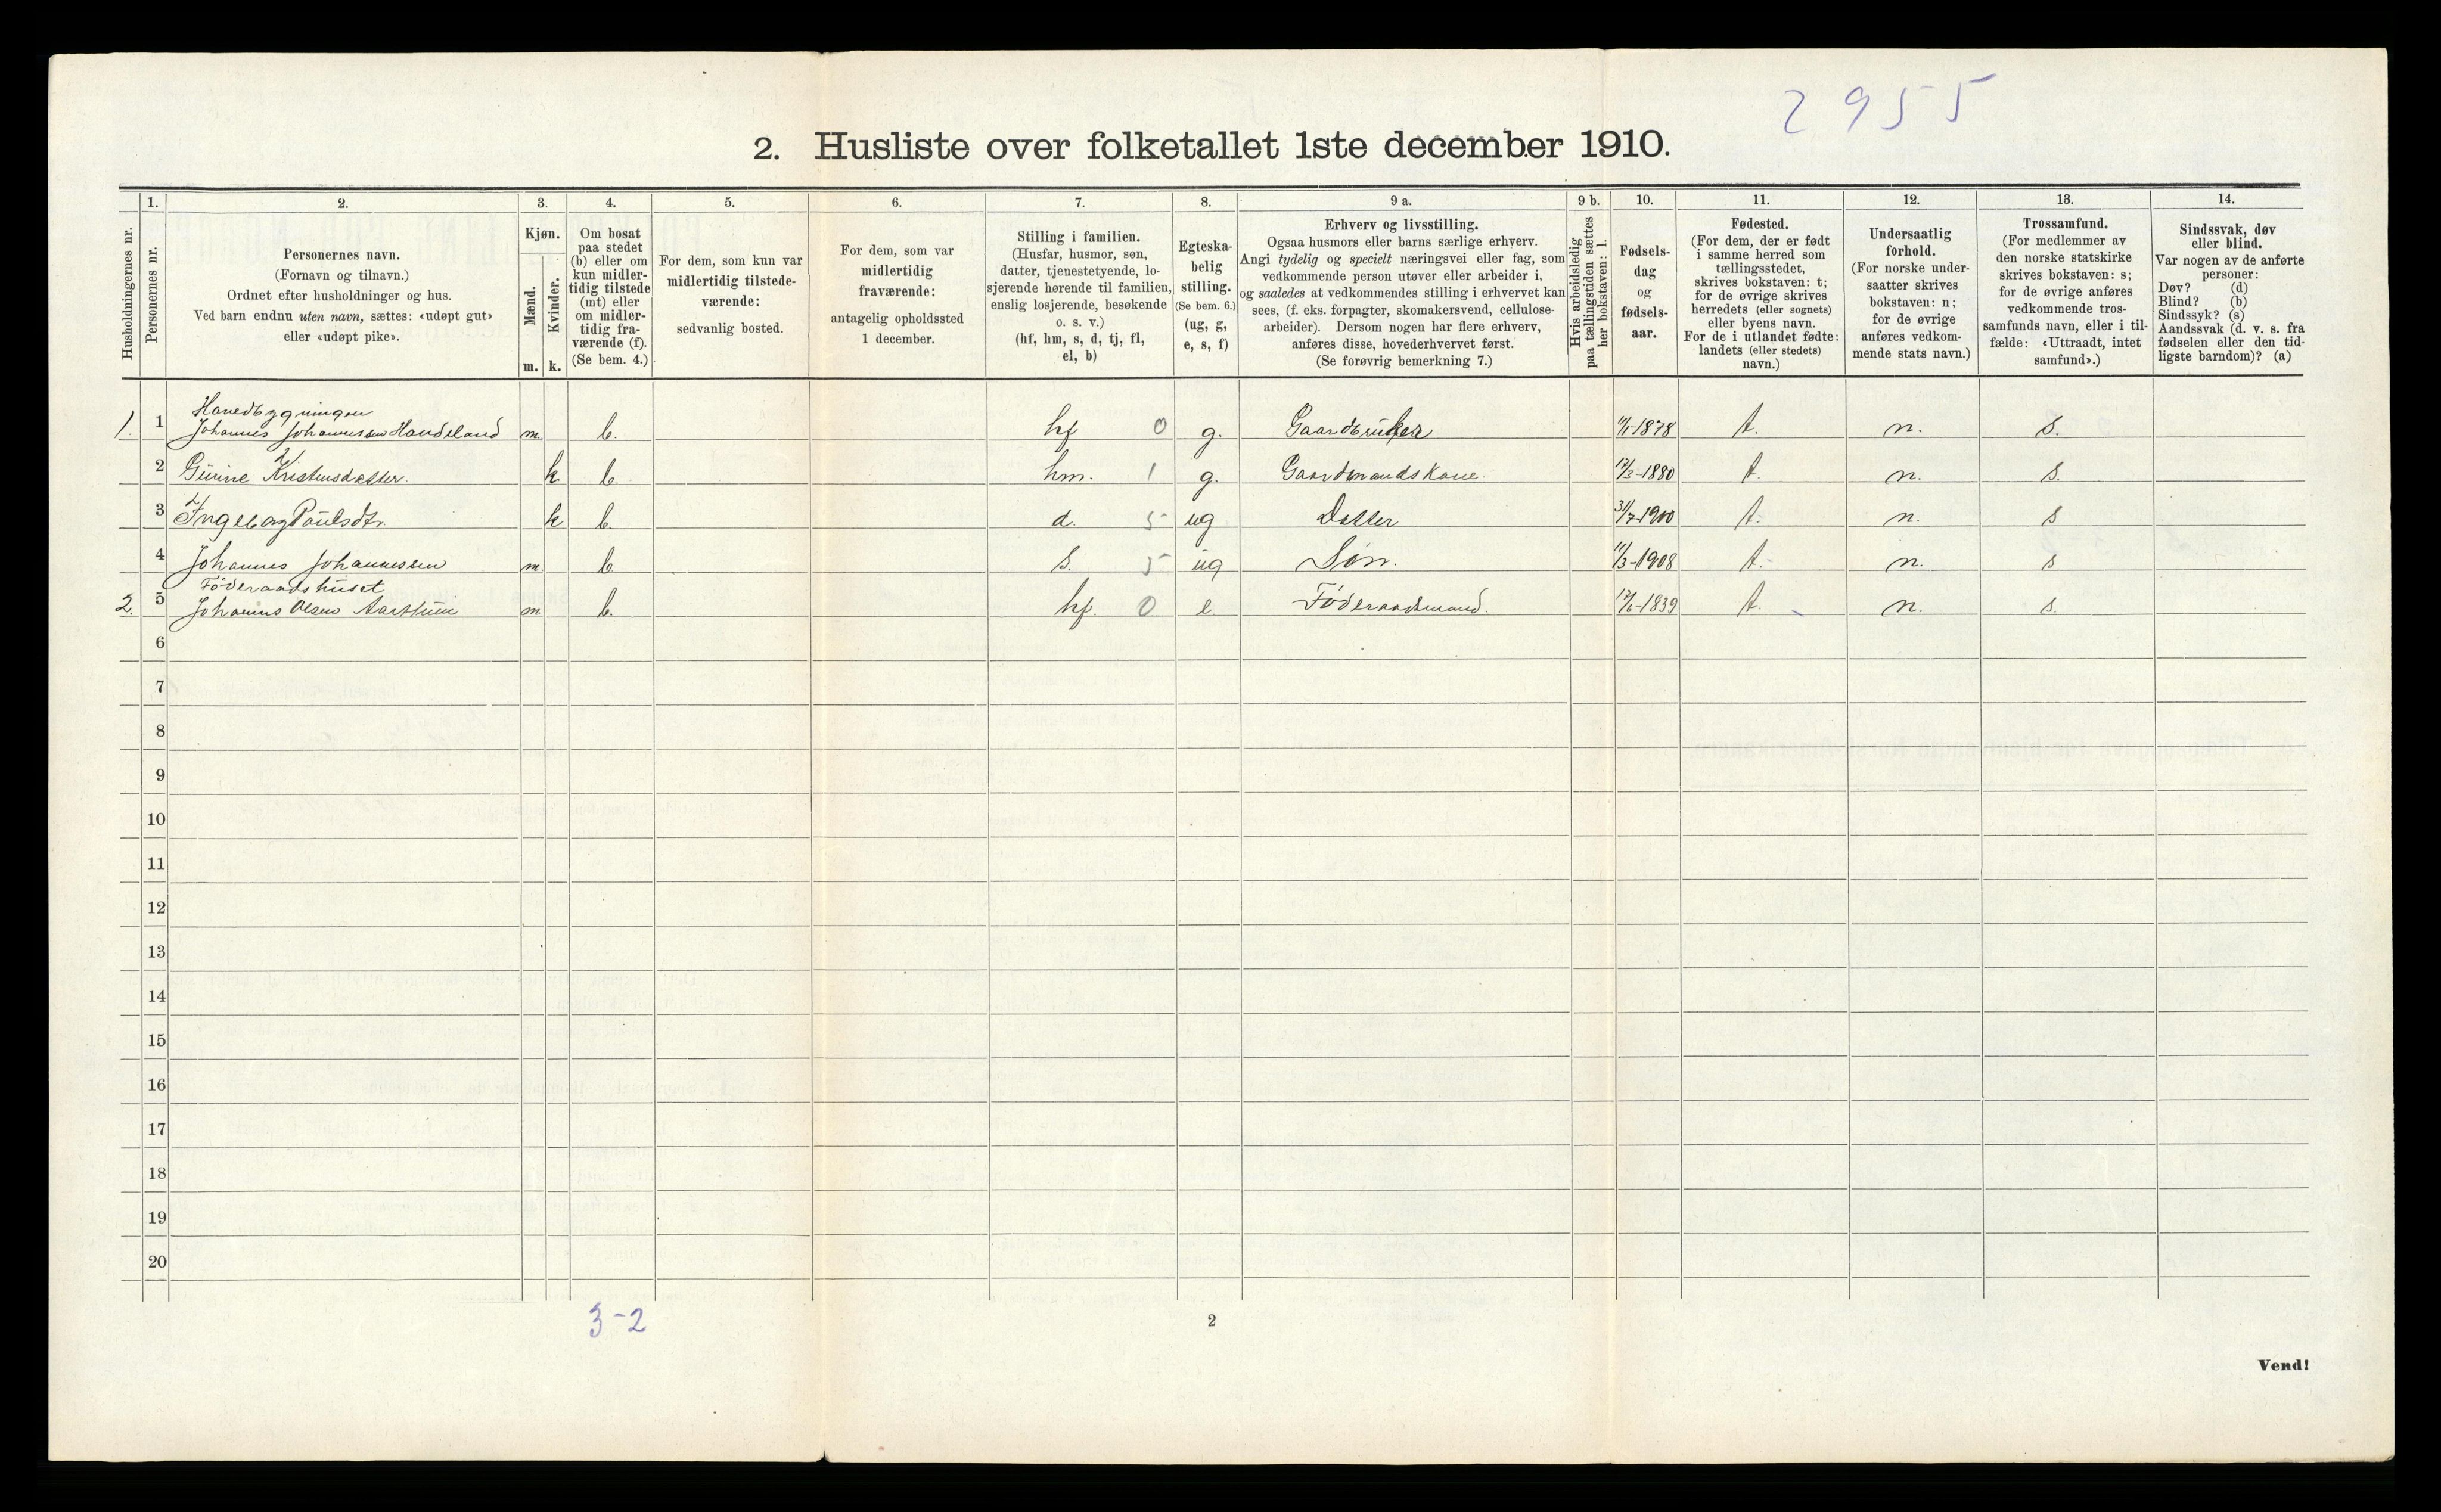 2955
2. Husliste over folketallet 1ste december 1910.
Husholdningernes nr.
1.
Personernes nr.
2.
Personernes navn.
(Fornavn og tilnavn.)
Ordnet efter husholdninger og hus.
Ved barn endnu uten navn, sættes: «udøpt gut»
eller «udøpt pike».
3.
Kjøn.
Mænd.
m.
Kvinder.
k.
4.
Om bosat
paa stedet
(b) eller om
kun midler-
tidig tilstede
(mt) eller
om midler-
tidig fra-
værende (f).
(Se bem. 4.)
5.
For dem, som kun var
midlertidig tilstede-
værende:
sedvanlig bosted.
6.
For dem, som var
midlertidig
fraværende:
antagelig opholdssted
1 december.
7.
Stilling i familien.
(Husfar, husmor, søn,
datter, tjenestetyende, lo-
sjerende hørende til familien,
enslig losjerende, besøkende
o. s. v.)
(hf, hm, s, d, tj, fl,
el, b)
8.
Egteska-
belig
stilling.
(Se bem. 6.)
(ug, g,
e, s, f)
9 a.
Erhverv og livsstilling.
Ogsaa husmors eller barns særlige erhverv.
Angi tydelig og specielt næringsvei eller fag, som
vedkommende person utøver eller arbeider i,
og saaledes at vedkommendes stilling i erhvervet kan
sees, (f. eks. forpagter, skomakersvend, cellulose-
arbeider). Dersom nogen har flere erhverv,
anføres disse, hovederhvervet først.
(Se forøvrig bemerkning 7.)
9 b.
Hvis arbeidsledig
paa tællingstiden sættes
her bokstaven: l.
10.
Fødsels-
dag
og
fødsels-
aar.
11.
Fødested.
(For dem, der er født
i samme herred som
tællingsstedet,
skrives bokstaven: t;
for de øvrige skrives
herredets (eller sognets)
eller byens navn.
For de i utlandet fødte:
landets (eller stedets)
navn.)
12.
Undersaatlig
forhold.
(For norske under-
saatter skrives
bokstaven: n;
for de øvrige
anføres vedkom-
mende stats navn.)
13.
Trossamfund.
(For medlemmer av
den norske statskirke
skrives bokstaven: s;
for de øvrige anføres
vedkommende tros-
samfunds navn, eller i til-
fælde: «Uttraadt, intet
samfund».)
14.
Sindssvak, døv
eller blind.
Var nogen av de anførte
personer:
Døv? (d)
Blind? (b)
Sindssyk? (s)
Aandssvak (d. v. s. fra
fødselen eller den tid-
ligste barndom)? (a)
Hovedbygningen
1. 1 Johannes Johannessen m. b. hf 0 g. Gaardbruker 1878 t. n. s.
2 Gurine Kristensdatter. k. b. hm. 1 g. Gaardmandskone. 17/3-1880 t. n. s.
3 Ingeborg Paulsdtr. k b. d. 5 ug Datter 31/7-1900 t. n. s
4 Johannes Johannessen m. b s. 5 ug Søn. 11/3-1908 t. n. s
Föderaadshuset
2. 5 Johannes Olsen m. b. hf. 0 e. Föderaadsmand. 17/6-1839 t. n. s.
6
7
8
9
10
11
12
13
14
15
16
17
18
19
20
3-2
2
Vend!